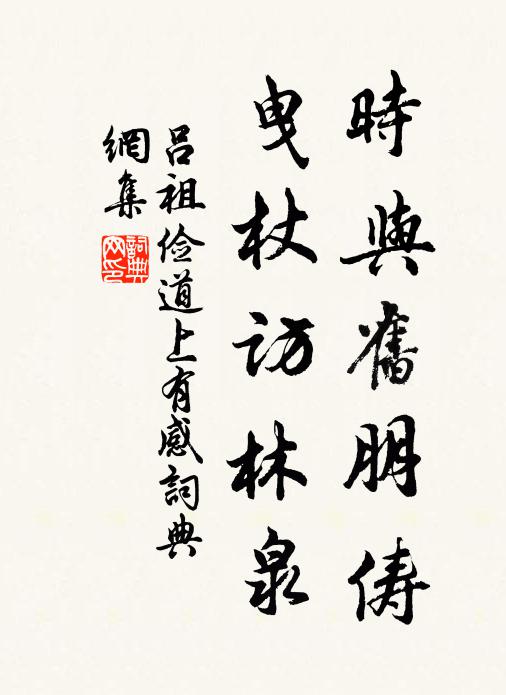 時與舊朋儔
曳杖访林泉
呂祖俭道上有感詞典
網集
詞典网印